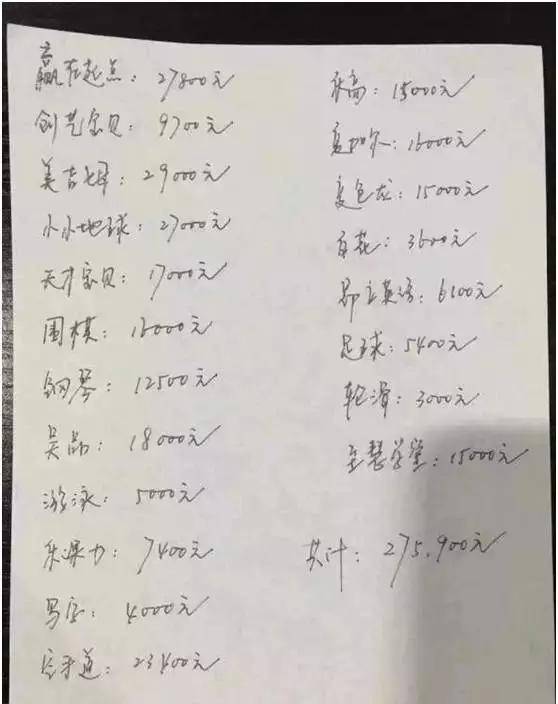 赢在起点：27800元
创艺宝贝：9700元
美吉姆：29000元
小小地球：27000元
天才宝贝：17000元
围棋：16000元
钢琴：12500元
吴晶：18000元
游泳：5000元
乐课力：7400元
写字：4000元
空手道：23400元
乐高：15000元
夏加尔：16000元
变色龙：15000元
百花：3600元
昂立英语：6100元
足球：5400元
轮滑：3000元
至慧学堂：15000元
共计：275.900元